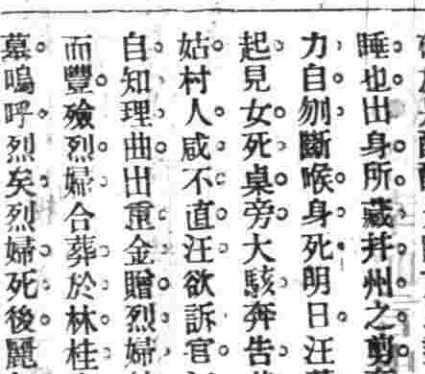 睡也。出身所。藏并州之。剪。
力自刎斷喉。身死。明日。汪
起。見女死。桌旁。大駭。奔告。
姑。村人。咸不直。汪欲訴官。
自。知理曲。出重金。贈。烈婦
而豐殮。烈婦。合葬於林桂
墓。嗚呼。烈矣。烈婦死。後。麗